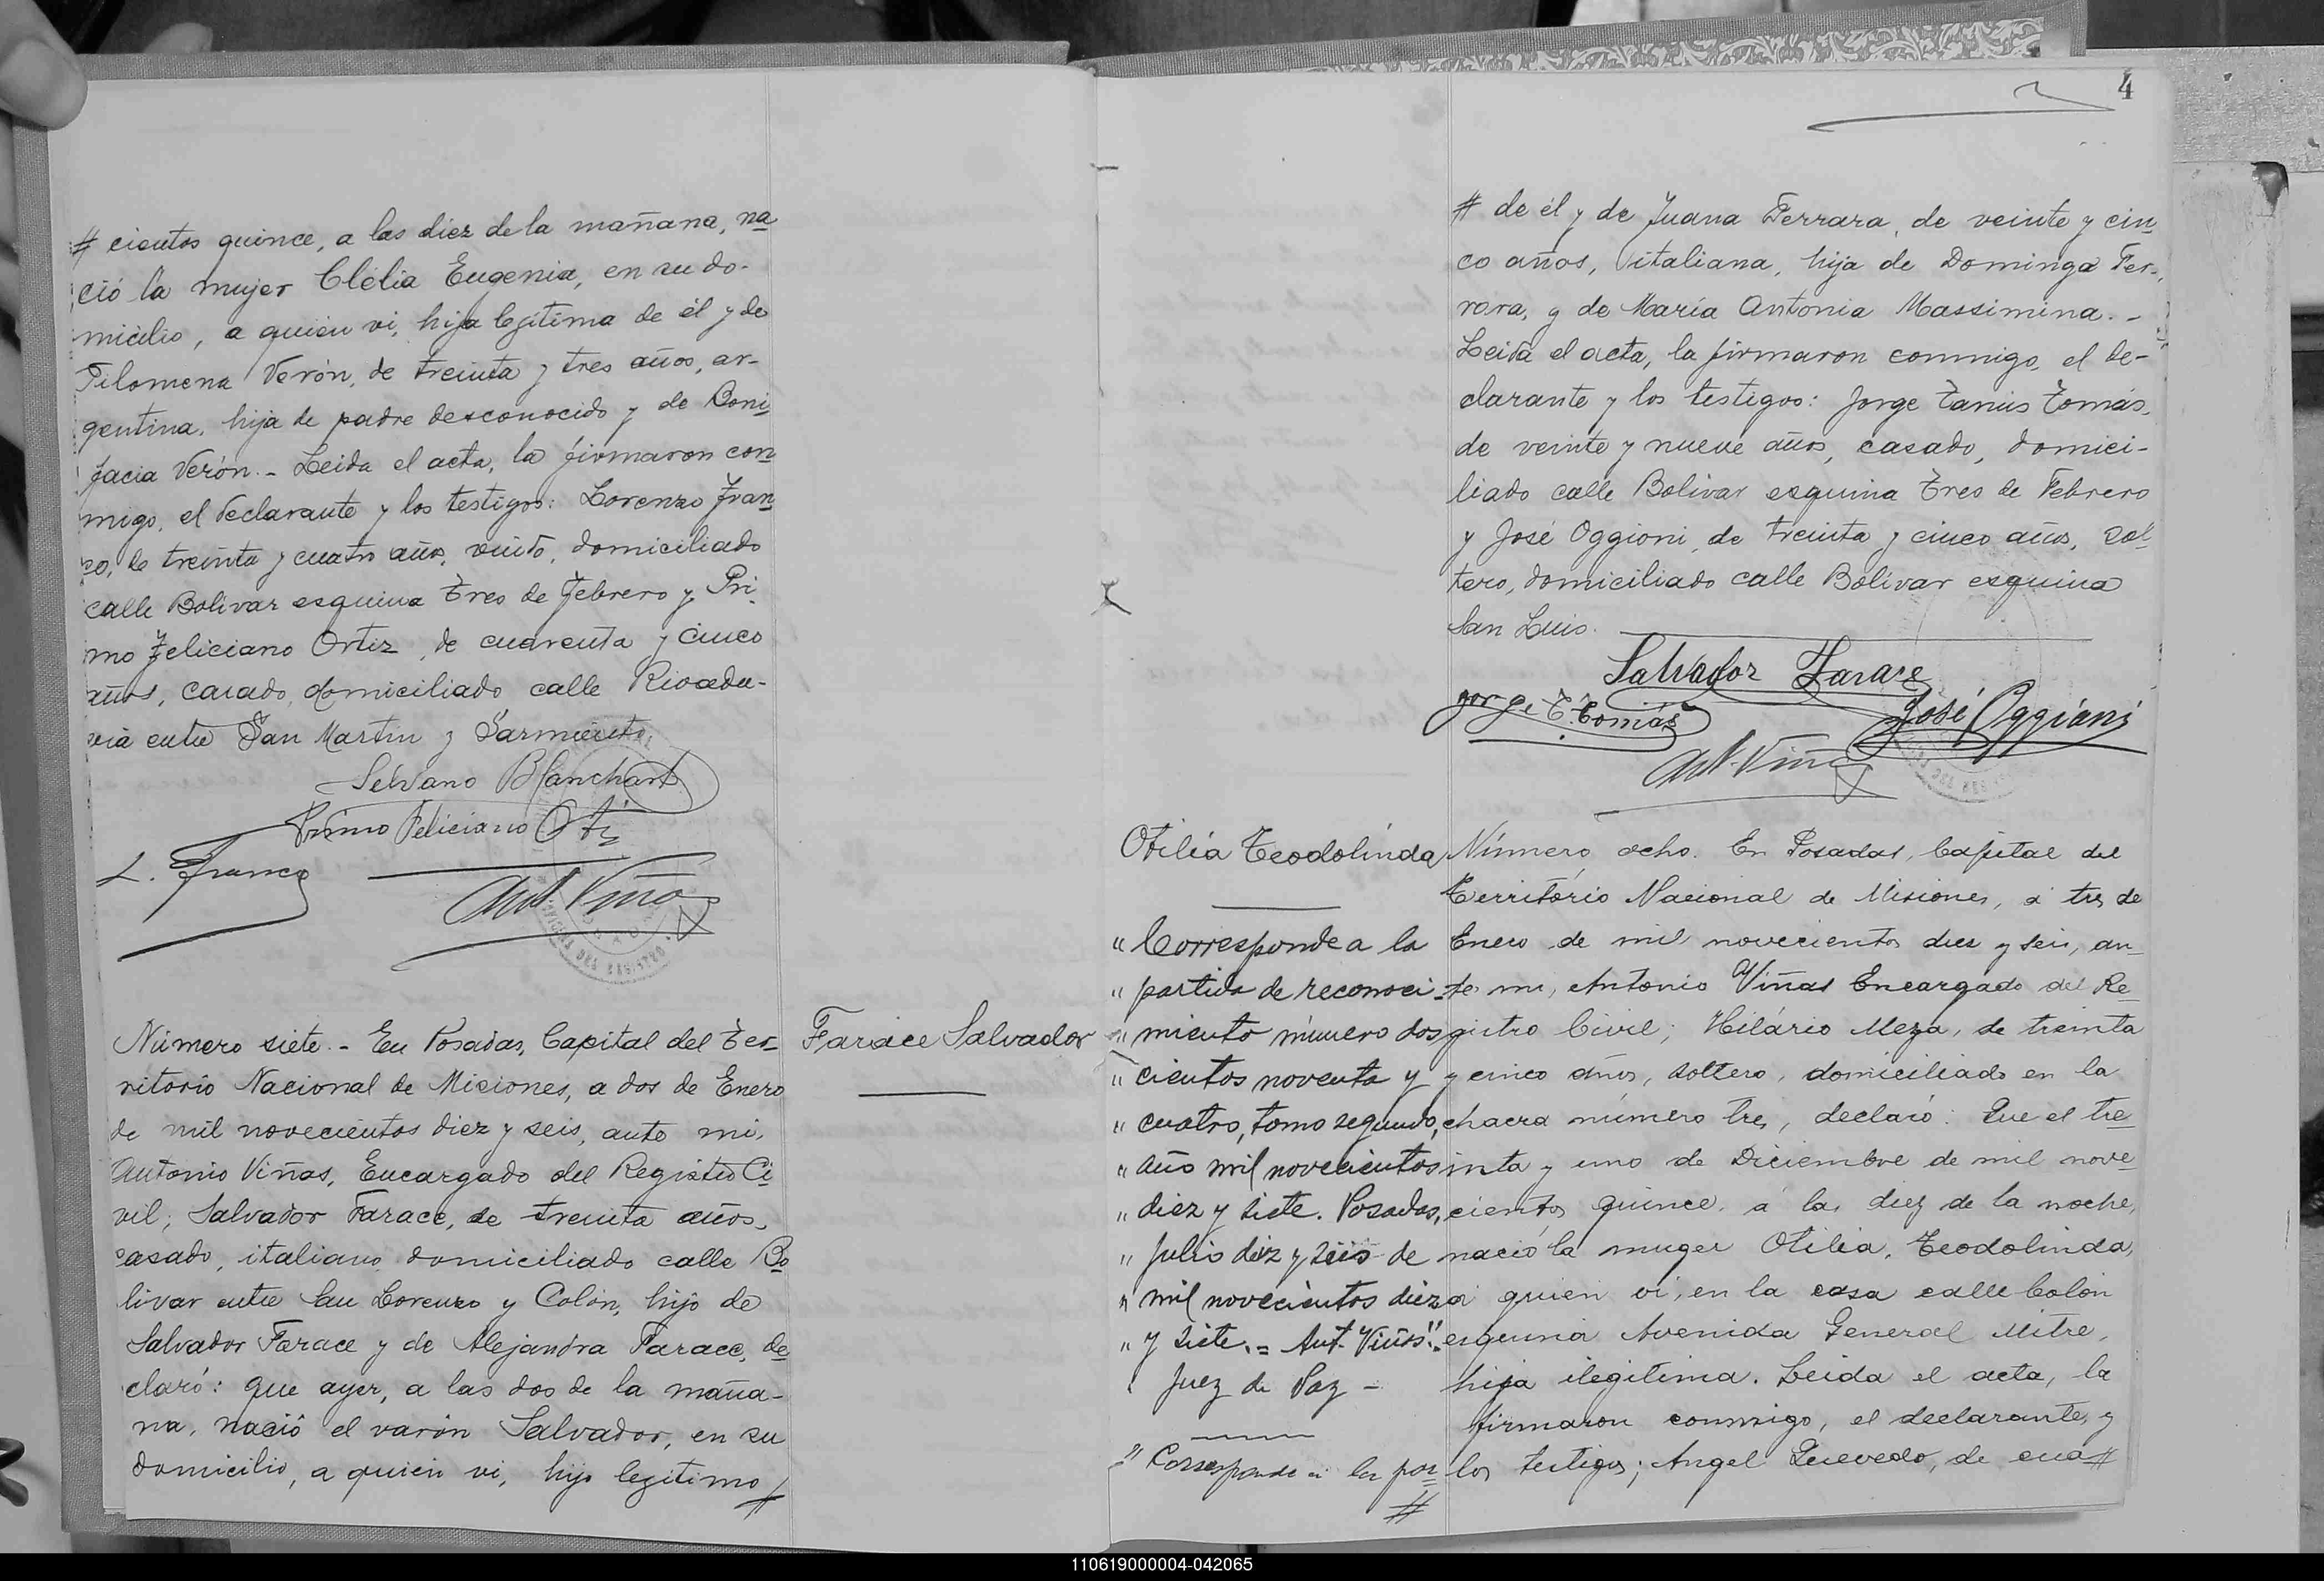 # cientos quince, a las diez de la mañana, na
ció la mujer Clélia Eugenia, en su do-
micilio, a quien vi, hija legítima de él y de
Filomena Verón, de treinta y tres años, ar-
gentina, hija de padre desconocido y de Boni
facia Verón. - Leida el acta, la firmaron con
migo, el declarante y los testigos: Lorenzo Fran
co, de treinta y cuatro años, viudo, domiciliado
calle Bolívar esquina Tres de Febrero y Pri
mo Feliciano Ortiz, de cuarenta y cinco
años, casado, domiciliado calle Rivada-
via entre San Martin y Sarmiento.
Blanchard
Primo Feliciano
L. Franco
Ant. Viñas
Número siete. - En Posadas, Capital del Ter-
ritorio Nacional de Misiones, a dos de Enero
de mil novecientos diez y seis, ante mi,
Antonio Viñas, Encargado del Registro Ci
vil; Salvador Farace, de treinta años,
casado, italiano domiciliado calle Bo
livar entre San Lorenzo y Colón, hijo de
Salvador Farace y de Alejandra Farace, de
claró: que ayer, a las dos de la maña-
na, nació el varón Salvador, en su
domicilio, a quien vi, hijo legitimo #
Farace Salvador
4
# de él y de Juana Ferrara, de veinte y cin
co años, italiana, hija de Dominga Fer-
rara, y de María Antonia Massimina. -
Leida el acta, la firmaron conmigo, el de-
clarante y los testigos: Jorge Tanus Tomás,
de veinte y nueve años, casado, domici-
liado calle Bolívar esquina Tres de Febrero
y José Oggioni, de treinta y cinco años, sol
tero, domiciliado calle Bolívar esquina
San Luis.
Salvador Farace
Jorge T. Tomás
José Oggioni
Ant. Viñas
Otilia Teodolinda
" Corresponde a la
" partida de reconoci-
" miento número dos
" cientos noventa y
" cuatro, tomo segundo,
" año mil novecientos
" diez y siete. Posadas,
" Julio diez y seis de
" mil novecientos diez
" y siete. = Ant. Viñas".
Juez de Paz -
" Corresponde a la par
#
Número ocho. En Posadas, Capital del
Território Nacional de Misiones, á tres de
Enero de mil novecientos diez y seis, an-
te mi, Antonio Viñas Encargado del Re
gistro Civil; Hilário Meza, de treinta
y cinco años, soltero, domiciliado en la
chacra número tres, declaró: Que el tre
inta y uno de Diciembre de mil nove
cientos quince, á las diez de la noche,
nació la muger Otilia, Teodolinda,
a quien vi, en la casa calle Colón
esquina Avenida General Mitre,
hija ilegitima. Leida el acta, la
firmaron conmigo, el declarante, y
los testigos; Angel Quevedo, de cua#
110619000004-042065